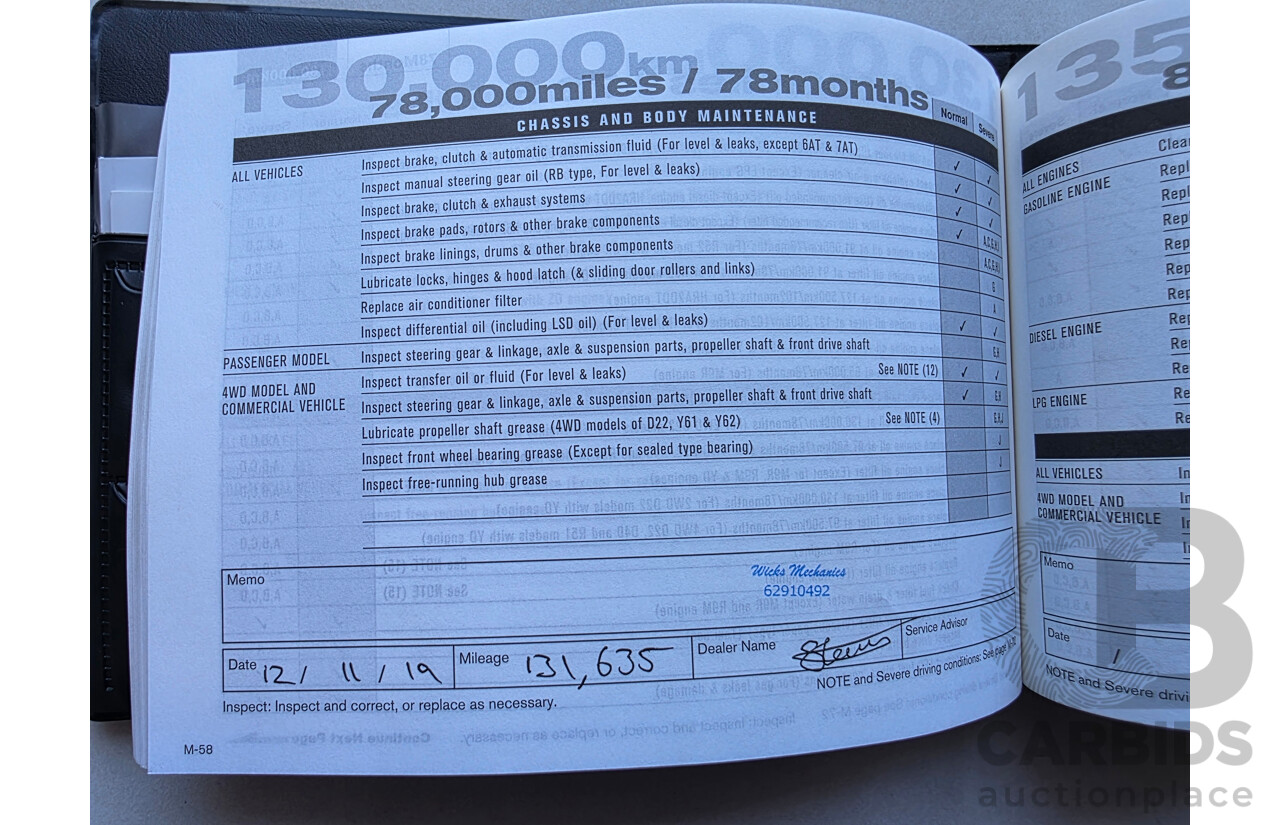 130,000km
78,000miles / 78months
CHASSIS AND BODY MAINTENANCE
Normal
Severe
ALL VEHICLES
Inspect brake, clutch & automatic transmission fluid (For level & leaks, except 6AT & 7AT)
Inspect manual steering gear oil (RB type, For level & leaks)
Inspect brake, clutch & exhaust systems
Inspect brake pads, rotors & other brake components
Inspect brake linings, drums & other brake components
Lubricate locks, hinges & hood latch (& sliding door rollers and links)
Replace air conditioner filter
Inspect differential oil (including LSD oil) (For level & leaks)
PASSENGER MODEL
Inspect steering gear & linkage, axle & suspension parts, propeller shaft & front drive shaft
G,H
4WD MODEL AND
COMMERCIAL VEHICLE
Inspect transfer oil or fluid (For level & leaks) See NOTE (12)
Inspect steering gear & linkage, axle & suspension parts, propeller shaft & front drive shaft
G,H
Lubricate propeller shaft grease (4WD models of D22, Y61 & Y62) See NOTE (4)
Inspect front wheel bearing grease (Except for sealed type bearing)
Inspect free-running hub grease
Memo
Wicks Mechanics
62910492
Date 12 / 11 / 19
Mileage 131,635
Dealer Name
Service Advisor
NOTE and Severe driving conditions: See page
Inspect: Inspect and correct, or replace as necessary.
M-58
135
8
ALL ENGINES
GASOLINE ENGINE
DIESEL ENGINE
LPG ENGINE
ALL VEHICLES
4WD MODEL AND
COMMERCIAL VEHICLE
Memo
Date /
NOTE and Severe drivi
CB
CARBIDS
auctionplace